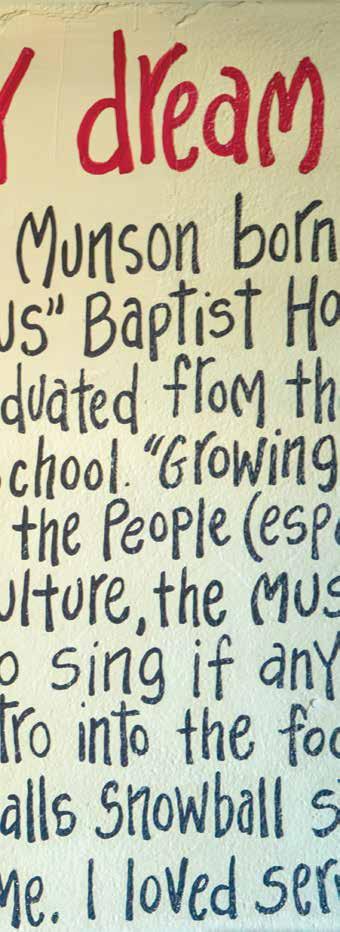 Y dream
Munson born
us" Baptist Ho
duated from th
school. "Growing
the People (espe
ulture, the Mus
o sing if any
tro into the foo
alls Snowball s
Me. I loved serv